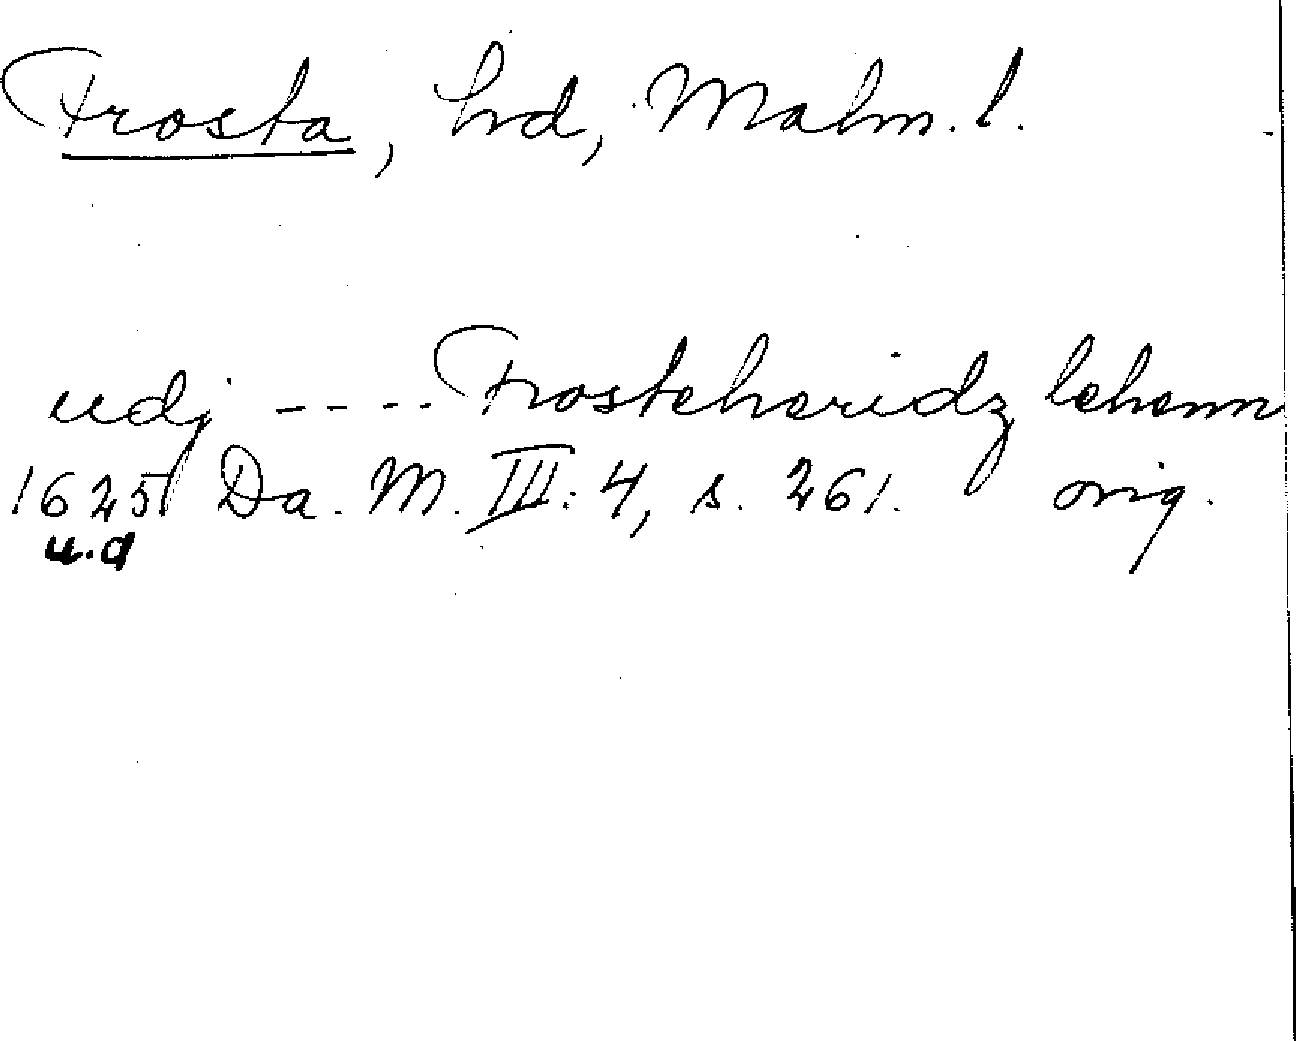 Frosta, hrd, Malm. l.
udj ---- Frosteheridz lehenn
1625 Da. M. III: 4, s. 261. orig.
u.d